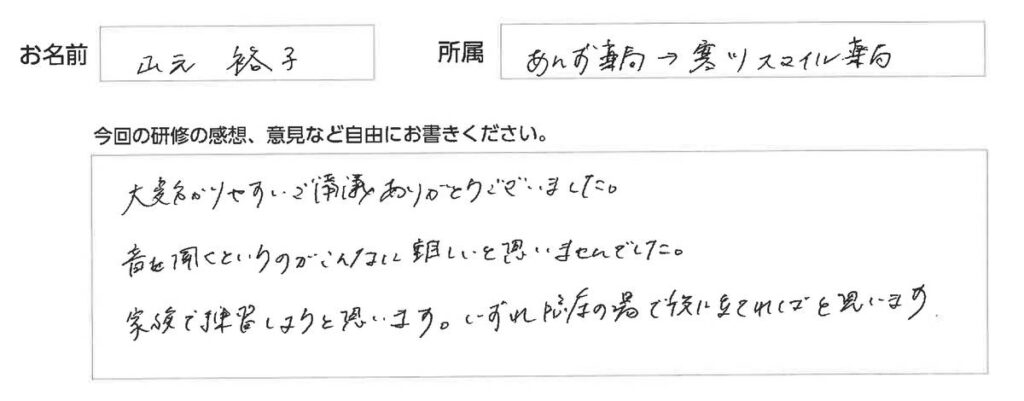 お名前 山元 裕子 所属 あんず薬局→寒川スマイル薬局
今回の研修の感想、意見など自由にお書きください。
大変分かりやすいご講義ありがとうございました。
音を聞くというのがこんなに難しいと思いませんでした。
家族で練習しようと思います。いずれ臨床の場で役に立てればと思います